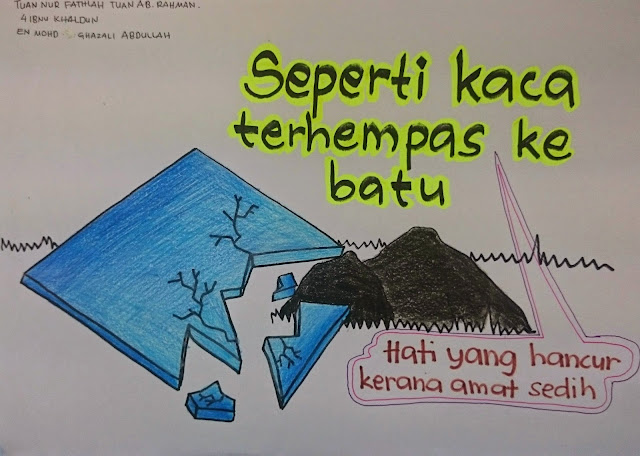 TUAN NUR FATHIAH TUAN AB. RAHMAN.
4 IBNU KHALDUN
EN MOHD GHAZALI ABDULLAH
Seperti kaca
terhempas ke
batu
Hati yang hancur
kerana amat sedih